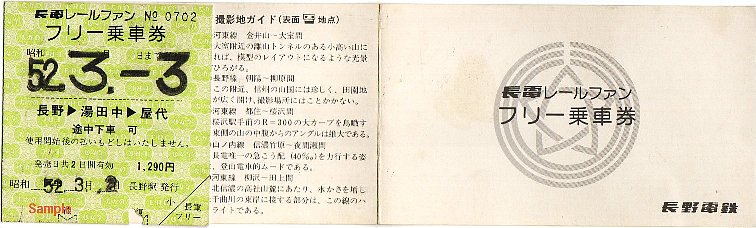 長電レールファン № 0702
フリー乗車券
昭和 月 日まで
52.3.-3
長野▶湯田中▶屋代
途中下車 可
使用開始後の払いもどしはいたしません。
発売日共2日間有効 1,290円
昭和 52.3月.2日 長野駅 発行
小
長電
フリー
Sample
撮影地ガイド(表面 地点)
河東線 金井山―大室間
大室附近の離山トンネルのある小高い山に
れば、模型のレイアウトになるような光景
ひろがる。
長野線 朝陽―柳原間
この附近、信州の山国には珍しく、田園地
が広く開け、撮影場所にはことかかない。
河東線 都住―桜沢間
桜沢駅手前のR=300の大カーブを鳥瞰す
東側の山の中腹からのアングルは雄大である。
山ノ内線 信濃竹原―夜間瀬間
長電唯一の急こう配(40‰)を力行する姿
、登山電車的ムードである。
河東線 柳沢―田上間
北信濃の高社山麓にあたり、水かさを増し
千曲川の東岸に接する部分は、この線のハ
ライトである。
長電レールファン
フリー乗車券
長野電鉄